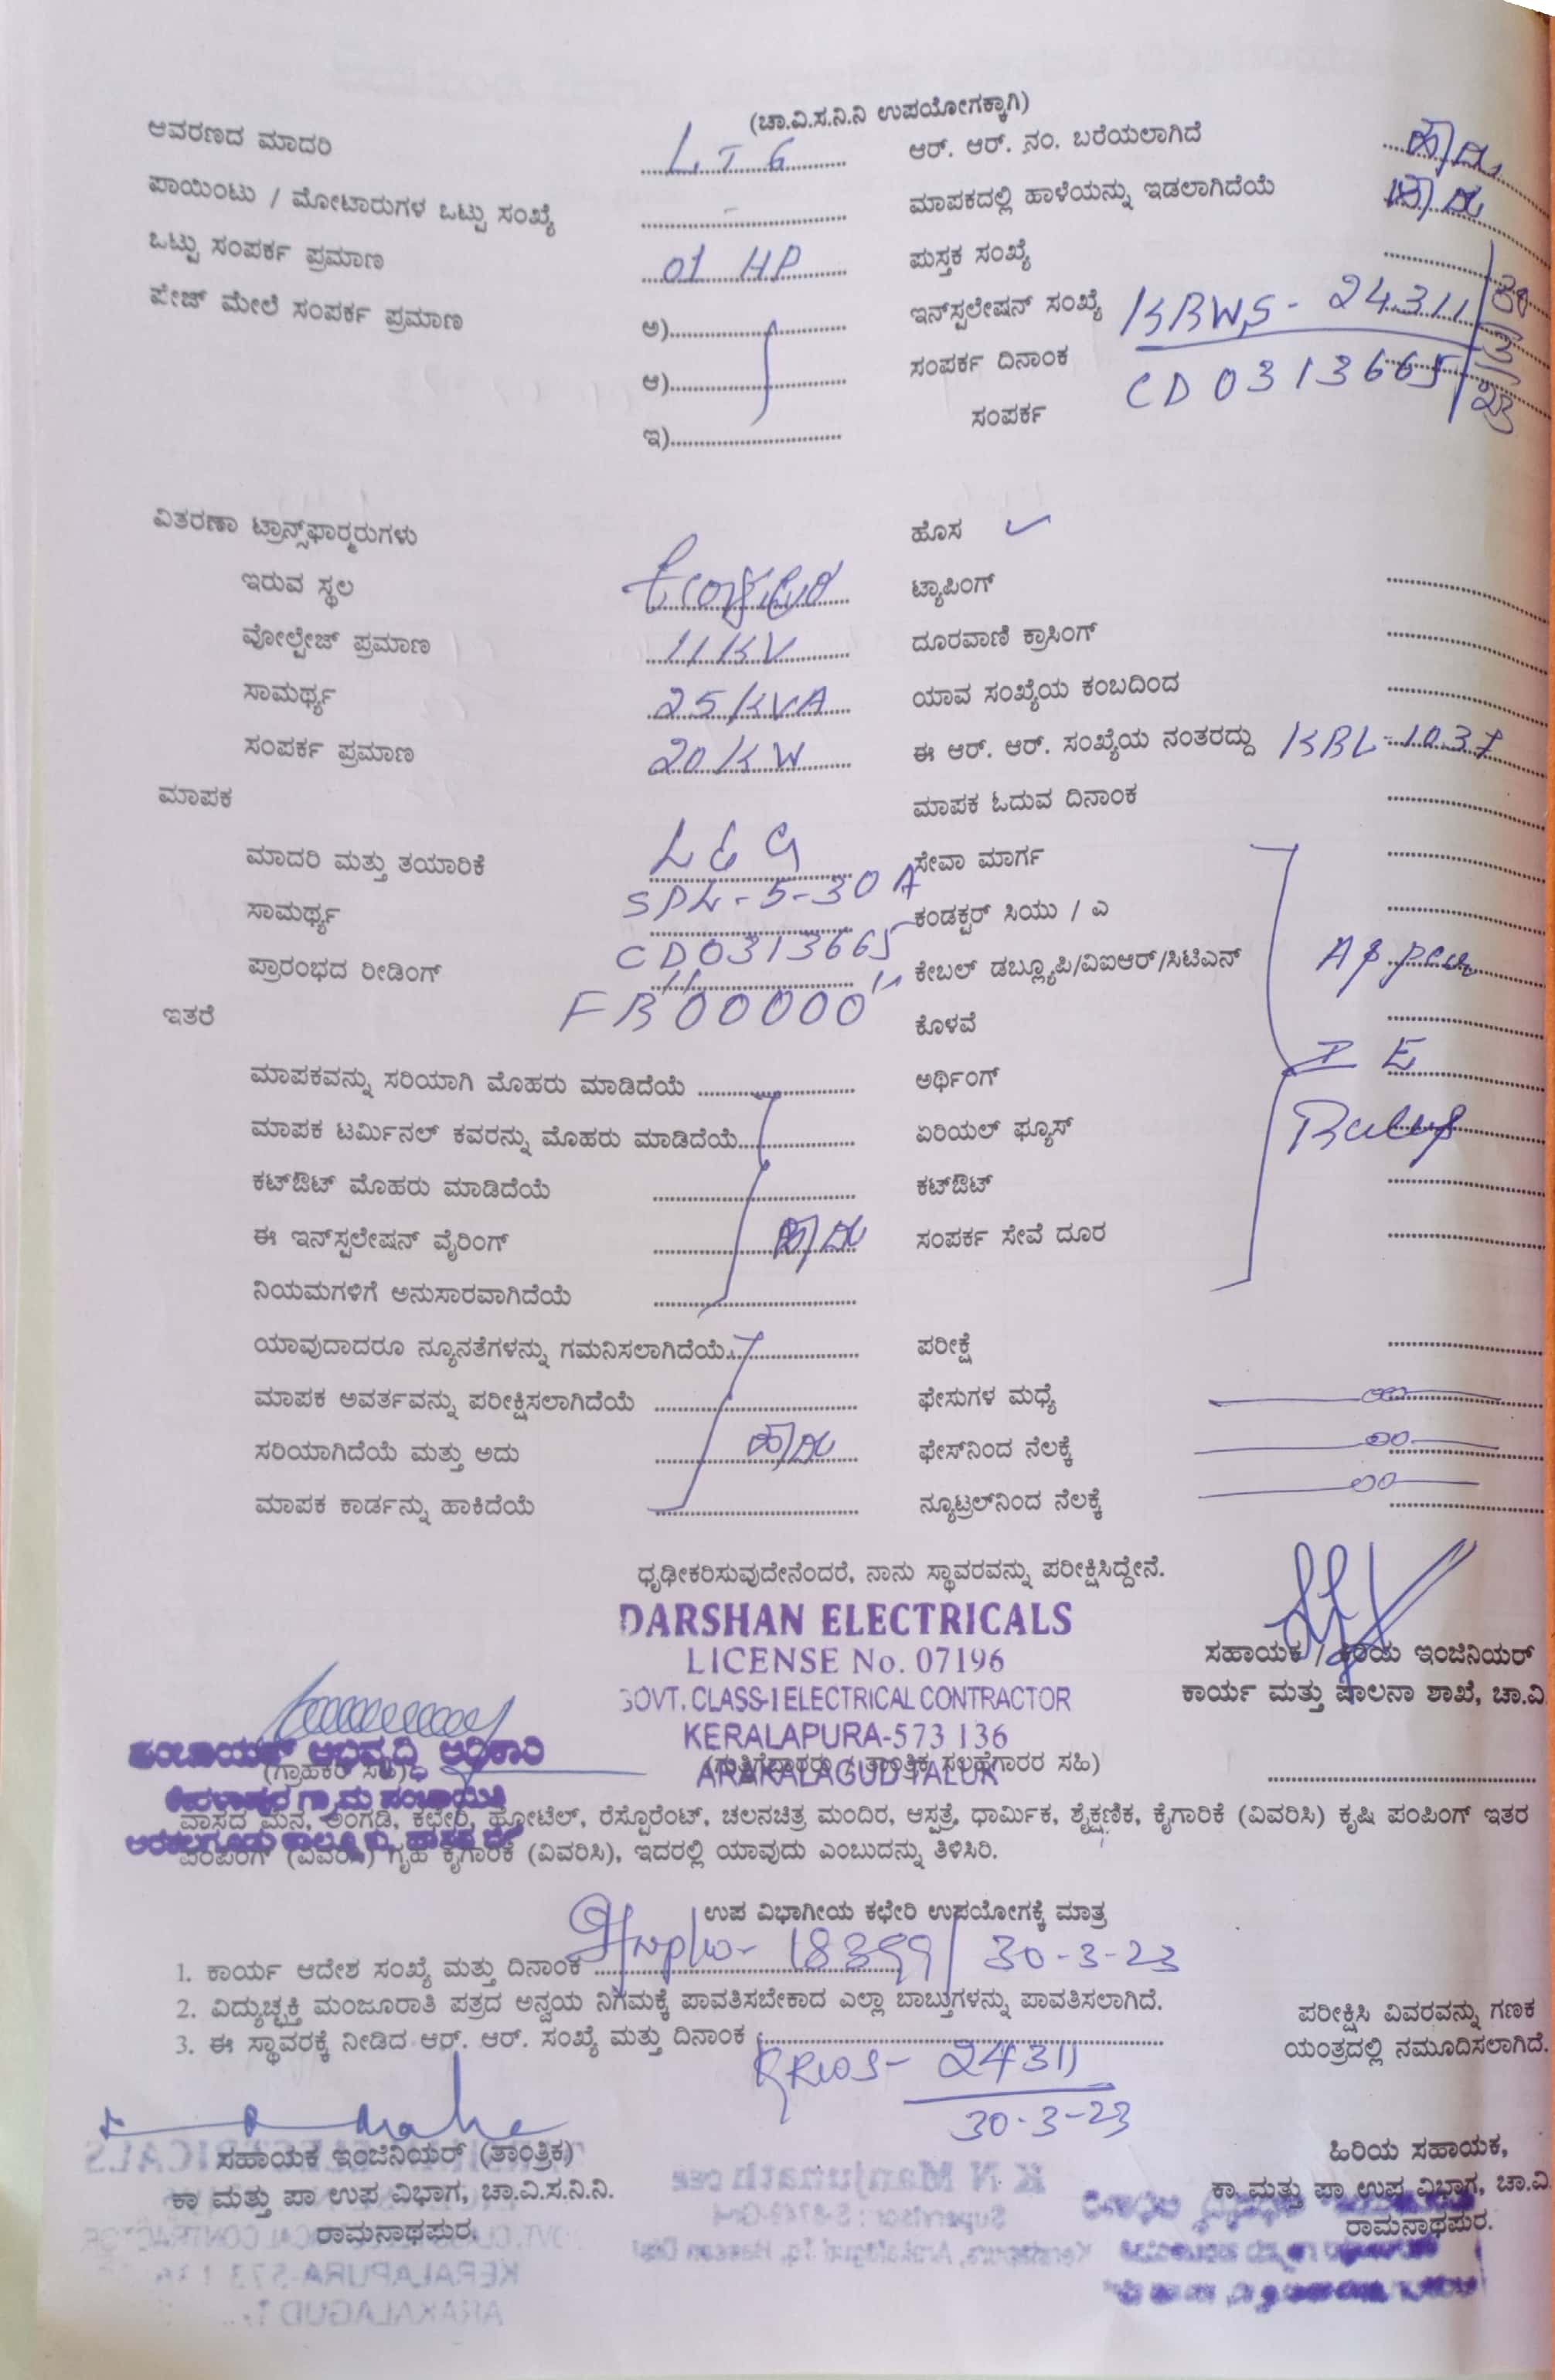 (ಚಾ.ವಿ.ಸ.ನಿ.ನಿ ಉಪಯೋಗಕ್ಕಾಗಿ)
ಆವರಣದ ಮಾದರಿ L T 6 ಆರ್. ಆರ್. ನಂ. ಬರೆಯಲಾಗಿದೆ
ಪಾಯಿಂಟು / ಮೋಟಾರುಗಳ ಒಟ್ಟು ಸಂಖ್ಯೆ - ಮಾಪಕದಲ್ಲಿ ಹಾಳೆಯನ್ನು ಇಡಲಾಗಿದೆಯೆ
ಒಟ್ಟು ಸಂಪರ್ಕ ಪ್ರಮಾಣ 01 HP ಪುಸ್ತಕ ಸಂಖ್ಯೆ
ಪೇಜ್ ಮೇಲೆ ಸಂಪರ್ಕ ಪ್ರಮಾಣ ಅ) ಇನ್‌ಸ್ಟಲೇಷನ್ ಸಂಖ್ಯೆ KBWS - 24311 30/3/23
ಆ) ಸಂಪರ್ಕ ದಿನಾಂಕ CD 0313665
ಇ) ಸಂಪರ್ಕ
ವಿತರಣಾ ಟ್ರಾನ್ಸ್‌ಫಾರ್ಮರುಗಳು ಹೊಸ ✓
ಇರುವ ಸ್ಥಲ ಟ್ಯಾಪಿಂಗ್
ವೋಲ್ಟೇಜ್ ಪ್ರಮಾಣ 11 KV ದೂರವಾಣಿ ಕ್ರಾಸಿಂಗ್
ಸಾಮರ್ಥ್ಯ 25 KVA ಯಾವ ಸಂಖ್ಯೆಯ ಕಂಬದಿಂದ
ಸಂಪರ್ಕ ಪ್ರಮಾಣ 20 KW ಈ ಆರ್. ಆರ್. ಸಂಖ್ಯೆಯ ನಂತರದ್ದು KBL - 1037
ಮಾಪಕ ಮಾಪಕ ಓದುವ ದಿನಾಂಕ
ಮಾದರಿ ಮತ್ತು ತಯಾರಿಕೆ L & G ಸೇವಾ ಮಾರ್ಗ
ಸಾಮರ್ಥ್ಯ 5-30 A ಕಂಡಕ್ಟರ್ ಸಿಯು / ಎ
ಪ್ರಾರಂಭದ ರೀಡಿಂಗ್ CD0313665 ಕೇಬಲ್ ಡಬ್ಲ್ಯೂಪಿ/ವಿಐಆರ್/ಸಿಟಿಎನ್
ಇತರೆ FR "00000" ಕೊಳವೆ
ಮಾಪಕವನ್ನು ಸರಿಯಾಗಿ ಮೊಹರು ಮಾಡಿದೆಯೆ ಅರ್ಥಿಂಗ್ I E
ಮಾಪಕ ಟರ್ಮಿನಲ್ ಕವರನ್ನು ಮೊಹರು ಮಾಡಿದೆಯೆ ಏರಿಯಲ್ ಫ್ಯೂಸ್
ಕಟ್‌ಔಟ್ ಮೊಹರು ಮಾಡಿದೆಯೆ ಕಟ್‌ಔಟ್
ಈ ಇನ್‌ಸ್ಟಲೇಷನ್ ವೈರಿಂಗ್ ಸಂಪರ್ಕ ಸೇವೆ ದೂರ
ನಿಯಮಗಳಿಗೆ ಅನುಸಾರವಾಗಿದೆಯೆ
ಯಾವುದಾದರೂ ನ್ಯೂನತೆಗಳನ್ನು ಗಮನಿಸಲಾಗಿದೆಯೆ ಪರೀಕ್ಷೆ
ಮಾಪಕ ಅವರ್ತವನ್ನು ಪರೀಕ್ಷಿಸಲಾಗಿದೆಯೆ ಫೇಸುಗಳ ಮಧ್ಯೆ
ಸರಿಯಾಗಿದೆಯೆ ಮತ್ತು ಅದು ಫೇಸ್‌ನಿಂದ ನೆಲಕ್ಕೆ
ಮಾಪಕ ಕಾರ್ಡನ್ನು ಹಾಕಿದೆಯೆ ನ್ಯೂಟ್ರಲ್‌ನಿಂದ ನೆಲಕ್ಕೆ
ಧೃಢೀಕರಿಸುವುದೇನೆಂದರೆ, ನಾನು ಸ್ಥಾವರವನ್ನು ಪರೀಕ್ಷಿಸಿದ್ದೇನೆ.
DARSHAN ELECTRICALS
LICENSE No. 07196
GOVT. CLASS-I ELECTRICAL CONTRACTOR
KERALAPURA-573 136
ARAKALAGUD TALUK
ಸಹಾಯಕ / ಕಿರಿಯ ಇಂಜಿನಿಯರ್
ಕಾರ್ಯ ಮತ್ತು ಪಾಲನಾ ಶಾಖೆ, ಚಾ.ವಿ
ಪಂಚಾಯತ್ ಅಭಿವೃದ್ಧಿ ಅಧಿಕಾರಿ
(ಗ್ರಾಹಕರ ಸಹಿ) (ಗುತ್ತಿಗೆದಾರರು / ತಾಂತ್ರಿಕ ಸಲಹೆಗಾರರ ಸಹಿ)
ಗ್ರಾಮ ಪಂಚಾಯಿತಿ
ವಾಸದ ಮನೆ, ಅಂಗಡಿ, ಕಛೇರಿ, ಹೋಟೆಲ್, ರೆಸ್ಟೊರೆಂಟ್, ಚಲನಚಿತ್ರ ಮಂದಿರ, ಆಸ್ಪತ್ರೆ, ಧಾರ್ಮಿಕ, ಶೈಕ್ಷಣಿಕ, ಕೈಗಾರಿಕೆ (ವಿವರಿಸಿ) ಕೃಷಿ ಪಂಪಿಂಗ್ ಇತರ
ಪಂಪಿಂಗ್ (ವಿವರಿಸಿ) ಗೃಹ ಕೈಗಾರಿಕೆ (ವಿವರಿಸಿ), ಇದರಲ್ಲಿ ಯಾವುದು ಎಂಬುದನ್ನು ತಿಳಿಸಿರಿ.
ಉಪ ವಿಭಾಗೀಯ ಕಛೇರಿ ಉಪಯೋಗಕ್ಕೆ ಮಾತ್ರ
1. ಕಾರ್ಯ ಆದೇಶ ಸಂಖ್ಯೆ ಮತ್ತು ದಿನಾಂಕ 18399/ 30-3-23
2. ವಿದ್ಯುಚ್ಛಕ್ತಿ ಮಂಜೂರಾತಿ ಪತ್ರದ ಅನ್ವಯ ನಿಗಮಕ್ಕೆ ಪಾವತಿಸಬೇಕಾದ ಎಲ್ಲಾ ಬಾಬ್ತುಗಳನ್ನು ಪಾವತಿಸಲಾಗಿದೆ.
3. ಈ ಸ್ಥಾವರಕ್ಕೆ ನೀಡಿದ ಆರ್. ಆರ್. ಸಂಖ್ಯೆ ಮತ್ತು ದಿನಾಂಕ 24311
30-3-23
ಪರೀಕ್ಷಿಸಿ ವಿವರವನ್ನು ಗಣಕ
ಯಂತ್ರದಲ್ಲಿ ನಮೂದಿಸಲಾಗಿದೆ.
ಸಹಾಯಕ ಇಂಜಿನಿಯರ್ (ತಾಂತ್ರಿಕ)
ಕಾ ಮತ್ತು ಪಾ ಉಪ ವಿಭಾಗ, ಚಾ.ವಿ.ಸ.ನಿ.ನಿ.
ರಾಮನಾಥಪುರ.
ಹಿರಿಯ ಸಹಾಯಕ,
ಕಾ ಮತ್ತು ಪಾ ಉಪ ವಿಭಾಗ, ಚಾ.ವಿ
ರಾಮನಾಥಪುರ.